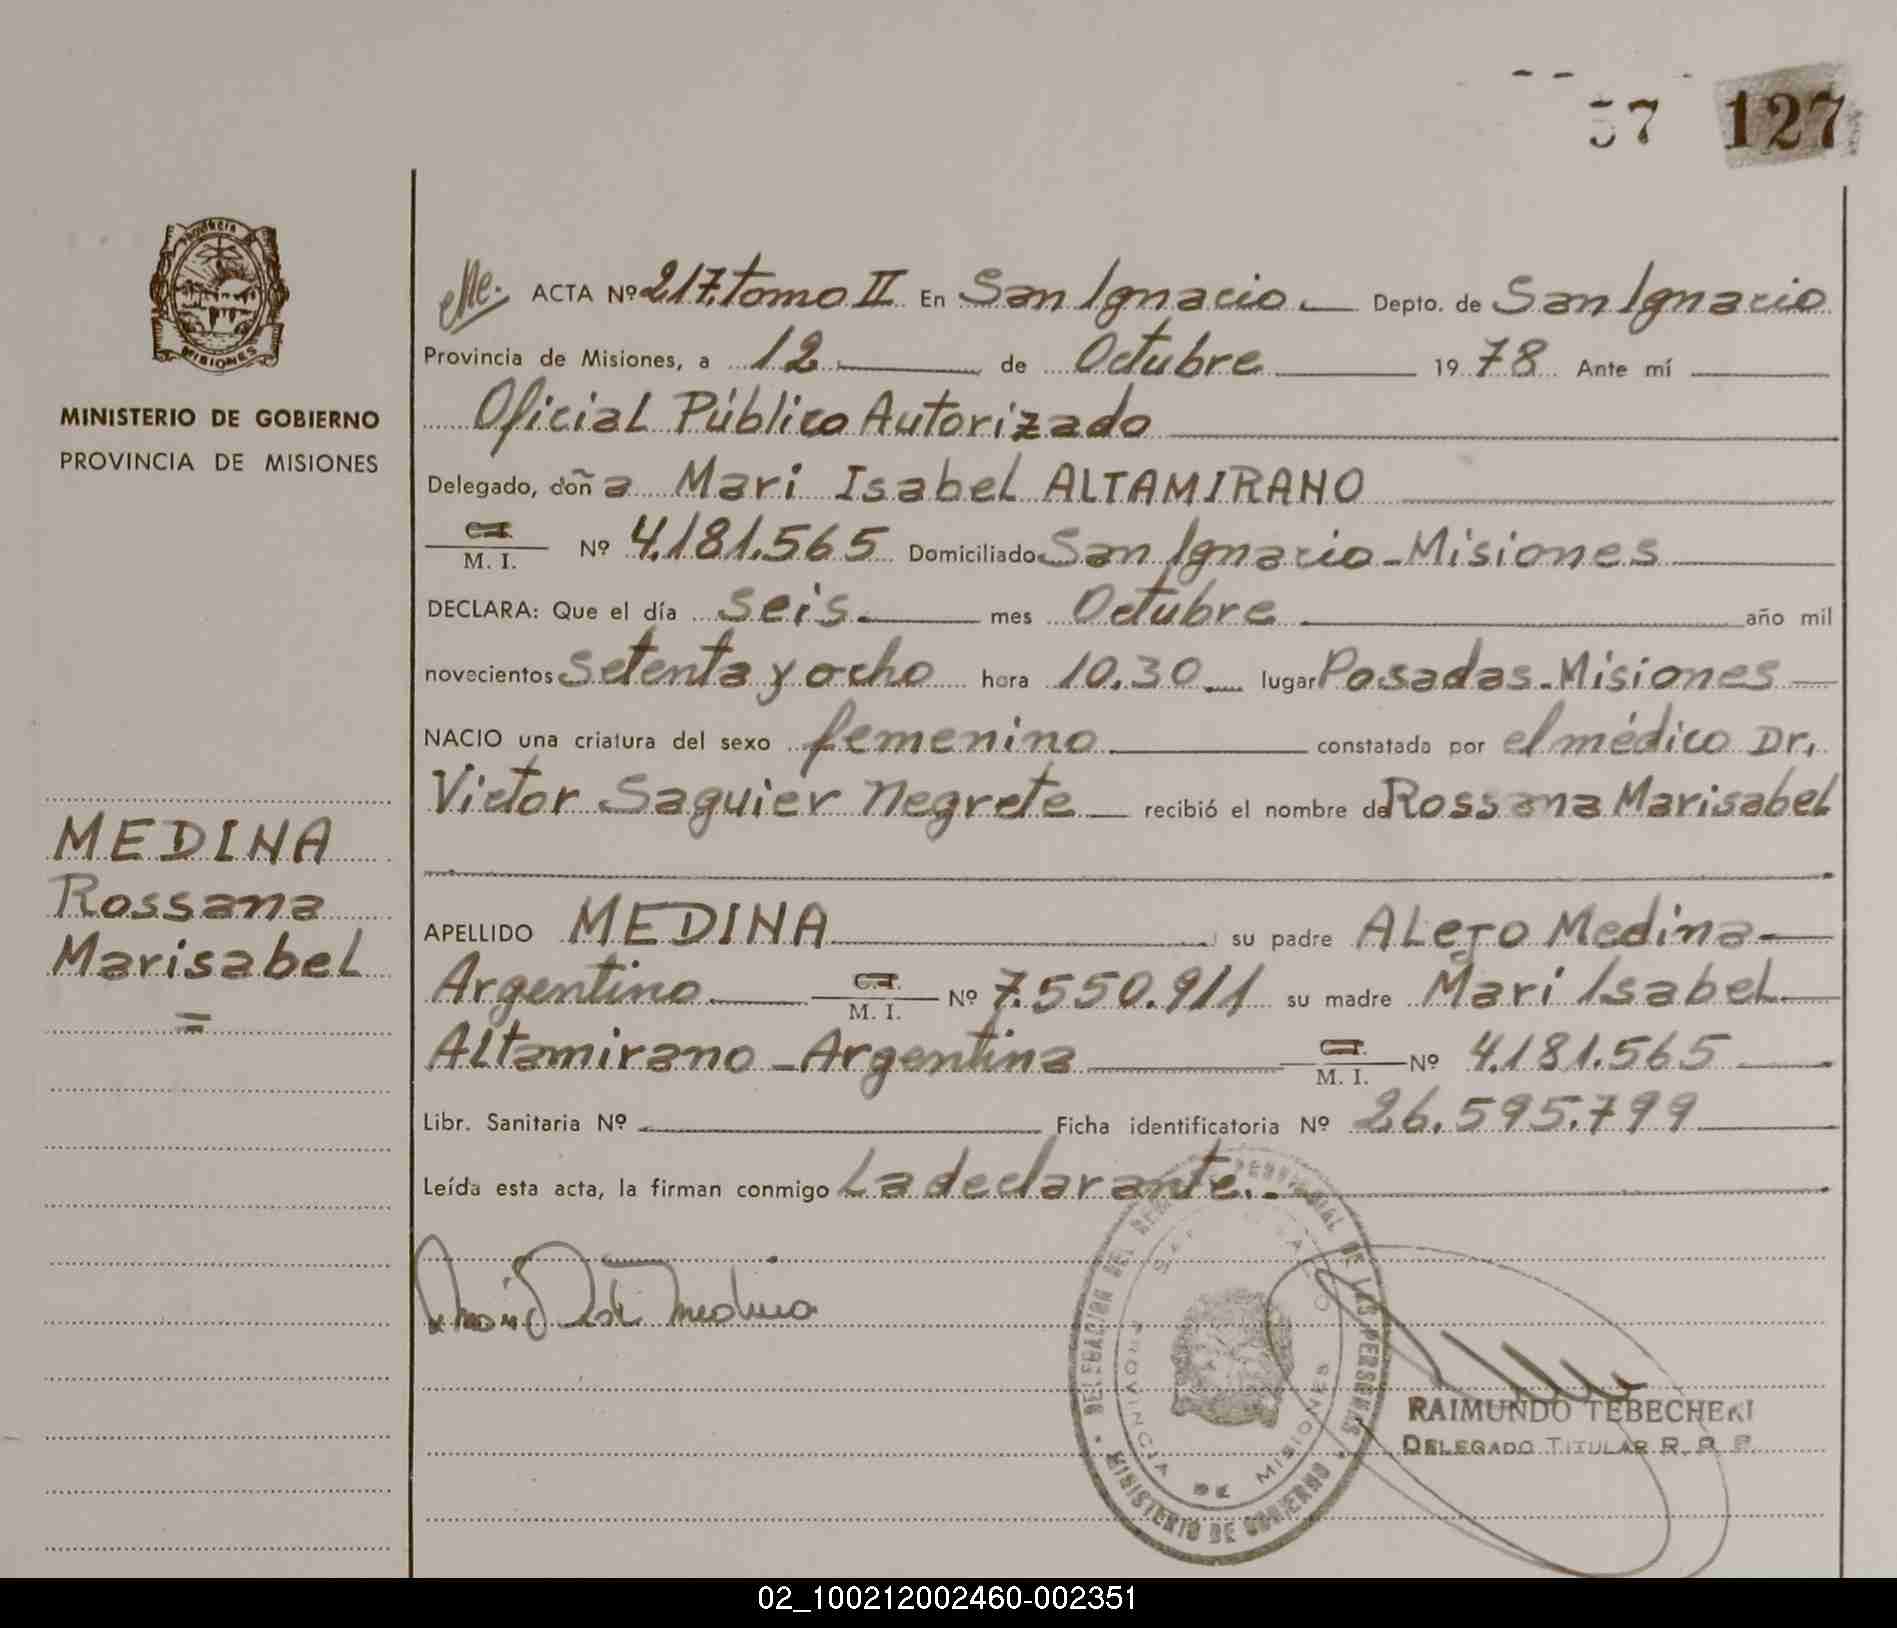 57 127
PROVINCIA
MISIONES
MINISTERIO DE GOBIERNO
PROVINCIA DE MISIONES
MEDINA
Rossana
Marisabel
=
ACTA Nº 217. tomo II En San Ignacio Depto. de San Ignacio
Provincia de Misiones, a 12 de Octubre 1978 Ante mí
Oficial Público Autorizado
Delegado, doña Mari Isabel ALTAMIRANO
C.I.
M. I. Nº 4.181.565 Domiciliado San Ignacio - Misiones
DECLARA: Que el día seis mes Octubre año mil
novecientos setenta y ocho hora 10.30 lugar Posadas - Misiones
NACIO una criatura del sexo femenino constatada por el médico Dr.
Victor Saguier Negrete recibió el nombre de Rossana Marisabel
APELLIDO MEDINA su padre Alejo Medina
Argentino C.I. M. I. Nº 7.550.911 su madre Mari Isabel
Altamirano - Argentina C.I. M. I. Nº 4.181.565
Libr. Sanitaria Nº Ficha identificatoria Nº 26.595.799
Leída esta acta, la firman conmigo La declarante.-
Medina
DELEGACION DEL REGISTRO PROVINCIAL DE LAS PERSONAS
MINISTERIO DE GOBIERNO
SAN IGNACIO
PROVINCIA DE MISIONES
RAIMUNDO TEBECHERI
DELEGADO TITULAR R. P. P.
02_100212002460-002351